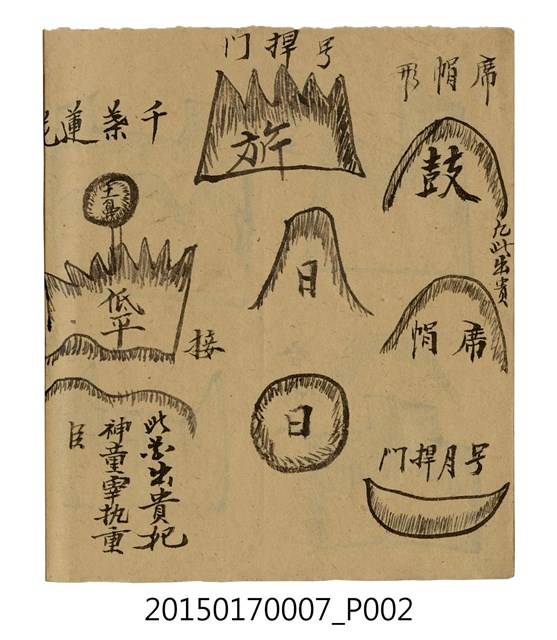 席帽形
鼓
凡此出貴
席帽
号月捍门
号捍门
旂
日
日
千葉蓮花
土鼻
低平
接
此出貴
神童宰执重
臣
20150170007_P002